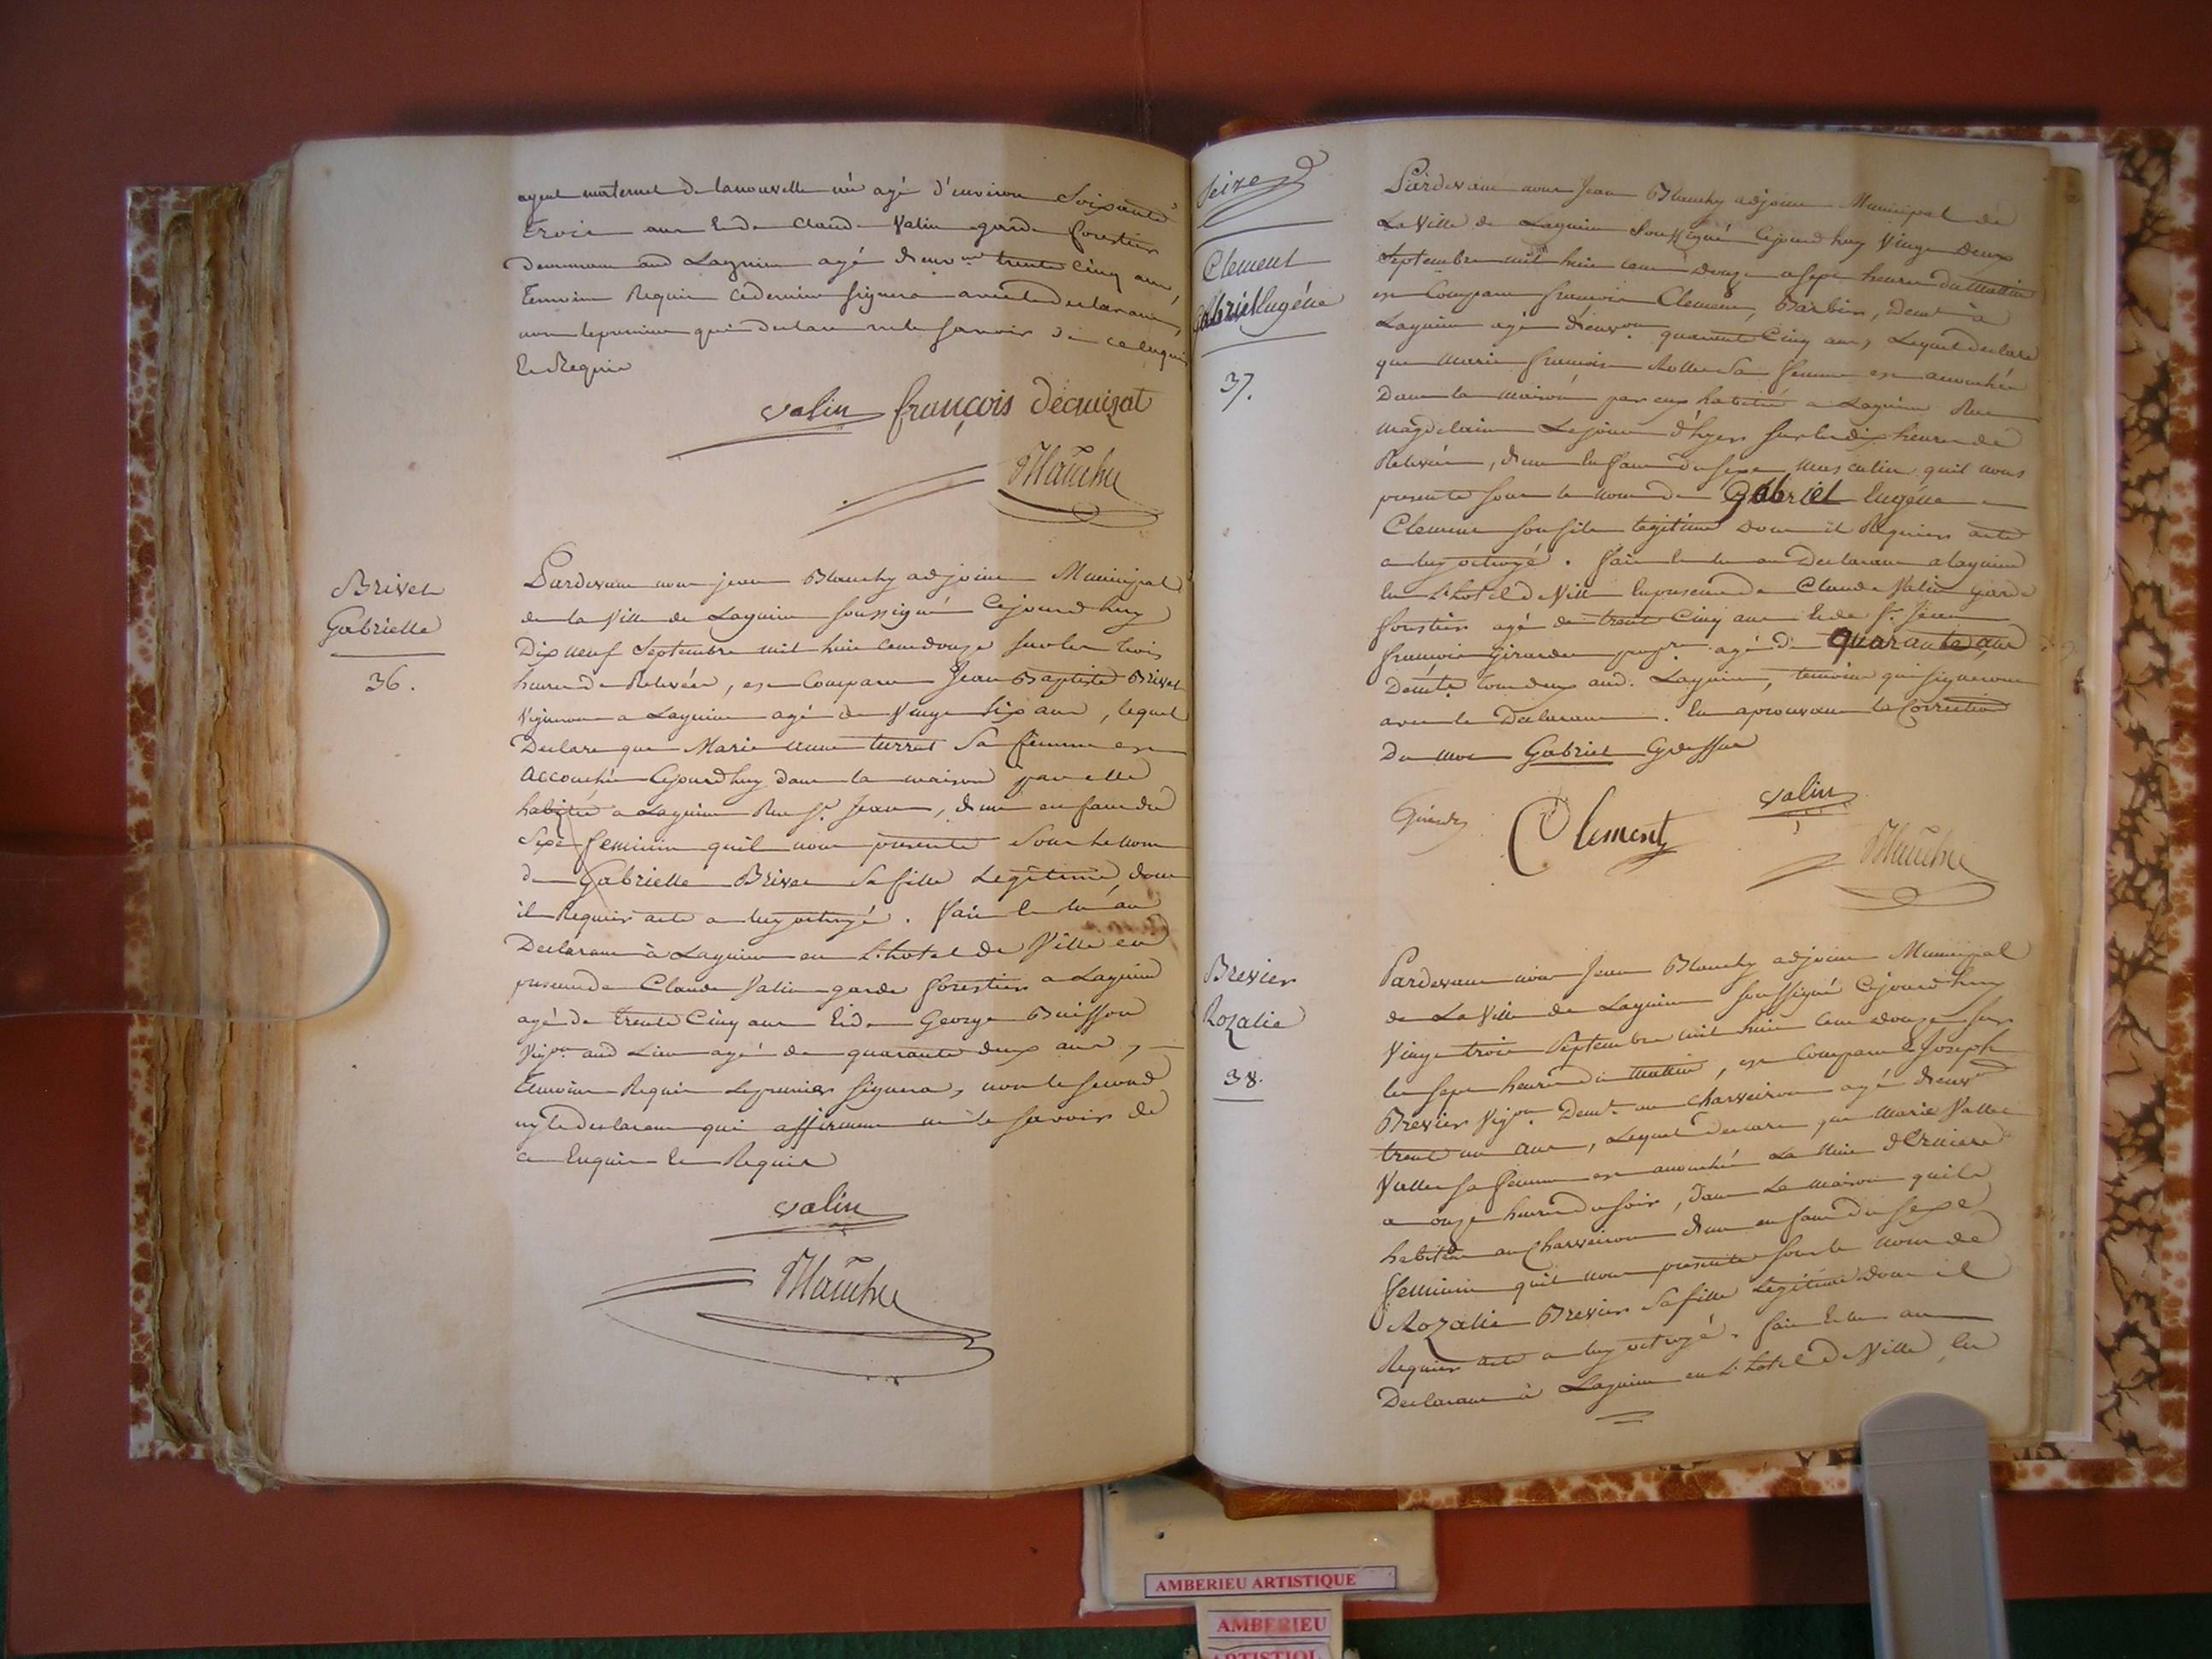 ayeul maternel de la nouvelle née agé d'environ Soixante
trois ans Et de Claude Valin garde forestier
demeurant aud Lagnieu agé d'env.on trente Cinq ans,
temoins Requis ce dernier signera avec le declarant,
non le premier qui declare ne le savoir de ce Enquis
Et Requis
Valin françois décruizat
Blanchy
Brivet
Gabrielle
36.
Pardevant nous jean Blanchy adjoint Municipal
de la Ville de Lagnieu soussigné Cejourd'huy
Dix neuf Septembre mil huit cent douze sur les trois
heures de Relevée, est Comparu Jean Baptiste Brivet
Vigneron a Lagnieu agé de Vingt six ans, lequel
Declare que Marie anne turrat Sa femme est
accouchée Cejourd'huy dans la maison par elle
habitée a Lagnieu Rue St. Jean, d'un enfant du
Sexe feminin qu'il nous presente Sous le nom
de Gabrielle Brivet Sa fille Legitime dont
il Requiert acte a luy octroyé. fait et lu au
Declarant à Lagnieu en L'hotel de Ville en
presence de Claude Valin garde forestier a Lagnieu
agé de trente Cinq ans Et de George Buisson
Vig.on aud Lieu agé de quarante deux ans,
temoins Requis Le premier signera, non le second
ny le declarant qui affirment ne le savoir de
ce Enquis Et Requis
Valin
Blanchy
Seize
Clement
Gabriel Eugéne
37.
Pardevant nous Jean Blanchy adjoint Municipal de
La Ville de Lagnieu Soussigné Cejourd'huy Vingt Deux
Septembre mil huit cent douze a sept heures du Mattin
est Comparu francois Clement, Barbier, Demt à
Lagnieu agé d'environ quarante Cinq ans, Lequel declare
que Marie francoise Sa femme est accouchée
Dans la maison par eux habitée a Lagnieu Rue
Magdelaine Le jour d'hyer sur les dix heures de
Relevée, d'un Enfant du sexe Masculin qu'il nous
presente sous le nom de Gabriel Eugéne
Clement son fils legitime dont il Requiert acte
a luy octroyé. fait et lu au Declarant a Lagnieu
En L'hotel de Ville En presence de Claude Valin garde
forestier agé de trente Cinq ans Et de Sr. Jean
francois Girardet agé de quarante ans
Demts tous deux aud. Lagnieu, temoins qui signeront
avec le Declarant. En aprouvant la Correction
Du mot Gabriel
Clement
Valin
Blanchy
Brevier
Rozalie
38.
Pardevant nous Jean Blanchy adjoint Municipal
de La Ville de Lagnieu Soussigné Cejourd'huy
Vingt trois Septembre mil huit cent douze sur
les sept heures du Mattin, est Comparu Joseph
Brevier Vig.on Demt. au Charveiron agé d'env.on
trente un ans, Lequel declare que Marie Vallet
Vallet sa femme est accouchée La Nuit derniere
a onze heures du soir, dans La Maison qu'ils
habitent au Charveiron d'un enfant du sexe
feminin qu'il nous presente sous le nom de
Rozalie Brevier Sa fille Legitime dont il
Requiert acte a luy octroyé. fait Et lu au
Declarant à Lagnieu en L'hotel de Ville, En
AMBERIEU ARTISTIQUE
AMBERIEU